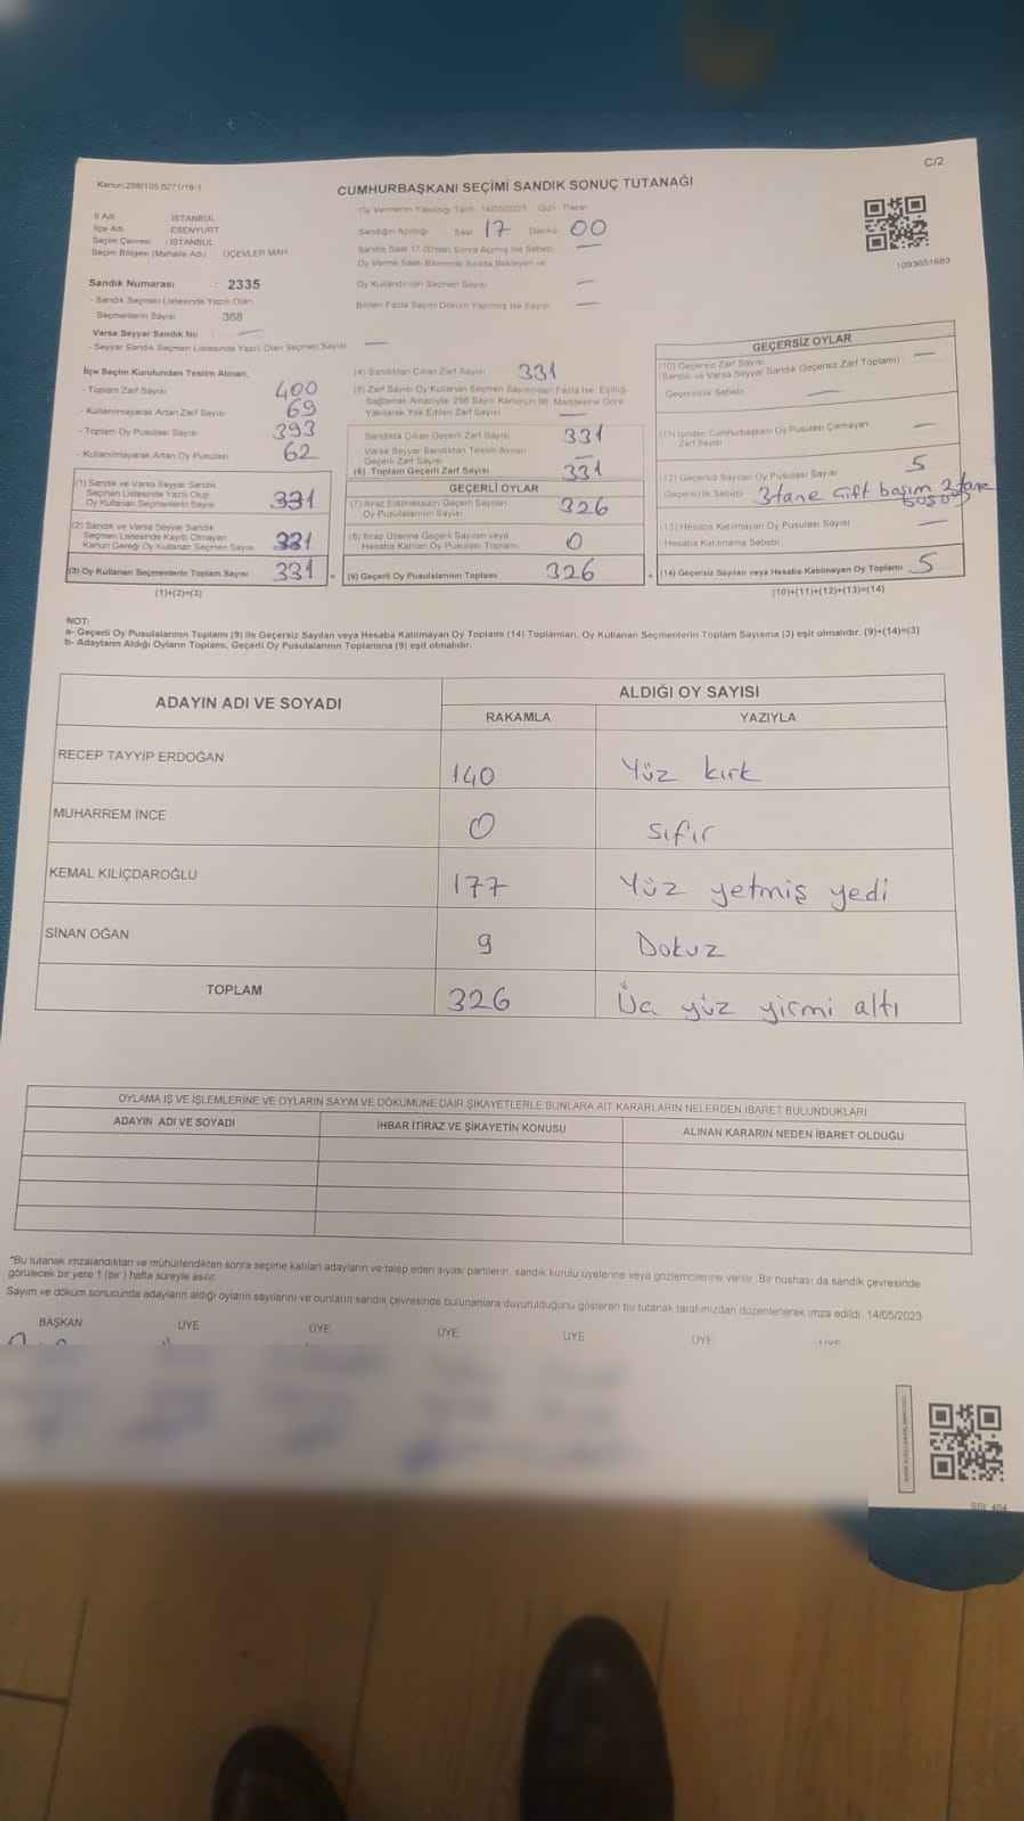 C/2
Kanun:298/105 6271/19-1
CUMHURBAŞKANI SEÇİMİ SANDIK SONUÇ TUTANAĞI
İl Adı İSTANBUL
İlçe Adı ESENYURT
Seçim Çevresi : İSTANBUL
Seçim Bölgesi (Mahalle Adı) ÜÇEVLER MAH.
Oy Vermenin Yapıldığı Tarih 14/05/2023 Gün Pazar
Sandığın Açıldığı Saat 17 Dakika 00
1093651683
Sandık Numarası : 2335
- Sandık Seçmen Listesinde Yazılı Olan
Seçmenlerin Sayısı 368
Oy Kullandırılan Seçmen Sayısı —
Varsa Seyyar Sandık No —
- Seyyar Sandık Seçmen Listesinde Yazılı Olan Seçmen Sayısı —
İlçe Seçim Kurulundan Teslim Alınan,
- Toplam Zarf Sayısı 400
- Kullanılmayarak Artan Zarf Sayısı 69
- Toplam Oy Pusulası Sayısı 393
- Kullanılmayarak Artan Oy Pusulası 62
(1) Sandık ve Varsa Seyyar Sandık
Seçmen Listesinde Yazılı Olup
Oy Kullanan Seçmenlerin Sayısı 331
(2) Sandık ve Varsa Seyyar Sandık
Seçmen Listesinde Kayıtlı Olmayan
Kanun Gereği Oy Kullanan Seçmen Sayısı 331
(3) Oy Kullanan Seçmenlerin Toplam Sayısı 331
(1)+(2)=(3)
(4) Sandıktan Çıkan Zarf Sayısı 331
(5) Zarf Sayısı Oy Kullanan Seçmen Sayısından Fazla İse, Eşitliği
Sağlamak Amacıyla 298 Sayılı Kanunun 98. Maddesine Göre
Yakılarak Yok Edilen Zarf Sayısı —
Sandıkta Çıkan Geçerli Zarf Sayısı 331
Varsa Seyyar Sandıktan Teslim Alınan
Geçerli Zarf Sayısı —
(6) Toplam Geçerli Zarf Sayısı 331
GEÇERLİ OYLAR
(7) İtiraz Edilmeksizin Geçerli Sayılan
Oy Pusulalarının Sayısı 326
(8) İtiraz Üzerine Geçerli Sayılan veya
Hesaba Katılan Oy Pusulası Toplamı 0
(9) Geçerli Oy Pusulalarının Toplamı 326
GEÇERSİZ OYLAR
(10) Geçersiz Zarf Sayısı
(Sandık ve Varsa Seyyar Sandık Geçersiz Zarf Toplamı) —
Geçersizlik Sebebi —
(11) İçinden Cumhurbaşkanı Oy Pusulası Çıkmayan
Zarf Sayısı —
(12) Geçersiz Sayılan Oy Pusulası Sayısı 5
Geçersizlik Sebebi 3 tane çift basım 2 tane
(13) Hesaba Katılmayan Oy Pusulası Sayısı —
Hesaba Katılmama Sebebi
(14) Geçersiz Sayılan veya Hesaba Katılmayan Oy Toplamı 5
(10)+(11)+(12)+(13)=(14)
NOT:
a- Geçerli Oy Pusulalarının Toplamı (9) ile Geçersiz Sayılan veya Hesaba Katılmayan Oy Toplamı (14) Toplamları, Oy Kullanan Seçmenlerin Toplam Sayısına (3) eşit olmalıdır. (9)+(14)=(3)
b- Adayların Aldığı Oyların Toplamı, Geçerli Oy Pusulalarının Toplamına (9) eşit olmalıdır.
ADAYIN ADI VE SOYADI ALDIĞI OY SAYISI
RAKAMLA YAZIYLA
RECEP TAYYİP ERDOĞAN 140 Yüz kırk
MUHARREM İNCE 0 Sıfır
KEMAL KILIÇDAROĞLU 177 Yüz yetmiş yedi
SİNAN OĞAN 9 Dokuz
TOPLAM 326 Üç yüz yirmi altı
OYLAMA İŞ VE İŞLEMLERİNE VE OYLARIN SAYIM VE DÖKÜMÜNE DAİR ŞİKAYETLERLE BUNLARA AİT KARARLARIN NELERDEN İBARET BULUNDUKLARI
ADAYIN ADI VE SOYADI İHBAR İTİRAZ VE ŞİKAYETİN KONUSU ALINAN KARARIN NEDEN İBARET OLDUĞU
*Bu tutanak imzalandıktan ve mühürlendikten sonra seçime katılan adayların ve talep eden siyasi partilerin, sandık kurulu üyelerine veya gözlemcilerine verilir. Bir nüshası da sandık çevresinde
görülecek bir yere 1 (bir) hafta süreyle asılır.
Sayım ve döküm sonucunda adayların aldığı oyların sayılarını ve bunların sandık çevresinde bulunanlara duyurulduğunu gösteren bu tutanak tarafımızdan düzenlenerek imza edildi. 14/05/2023
BAŞKAN ÜYE ÜYE ÜYE ÜYE ÜYE ÜYE